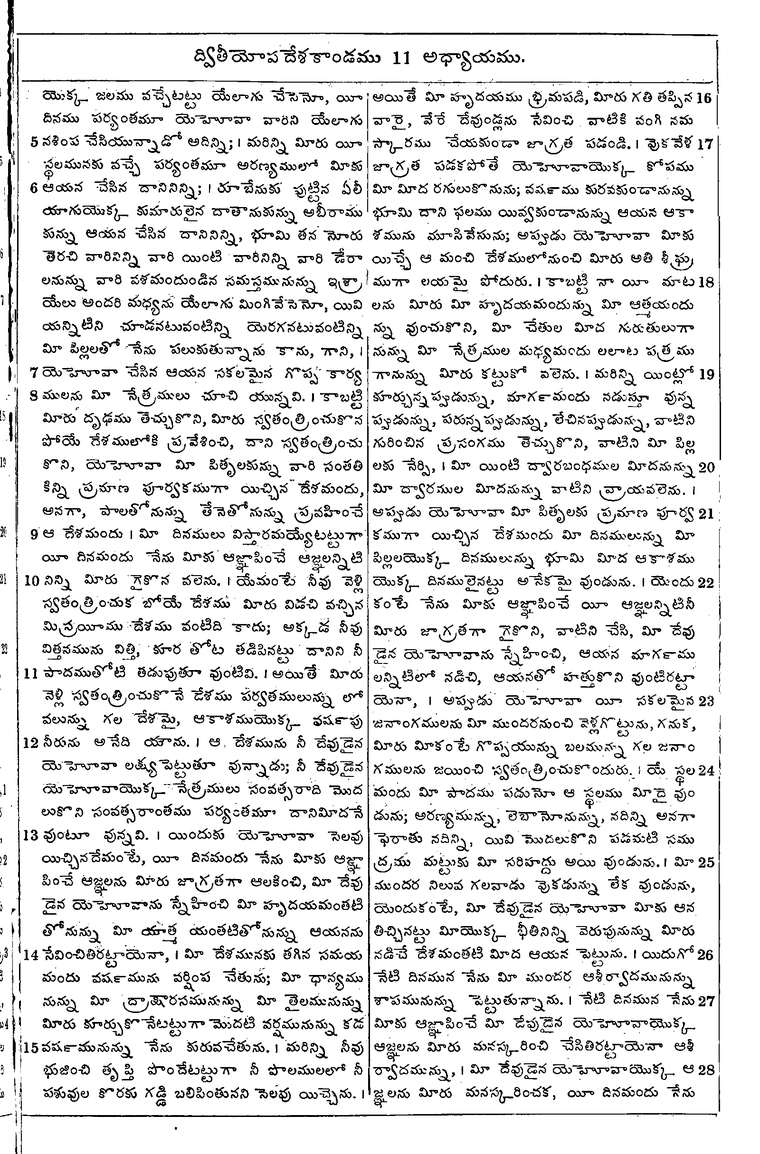 ద్వితీయోపదేశకాండము 11 అధ్యాయము.
యొక్క జలము వచ్చేటట్టు యేలాగు చేసెనో, యీ
దినము పర్యంతమూ యెహోవా వారిని యేలాగు
5 నశింప చేసియున్నాడో అదిన్ని; । మరిన్ని మీరు యీ
స్థలమునకు వచ్చే పర్యంతమూ అరణ్యములో మీకు
6 ఆయన చేసిన దానినిన్ని; । రూబేనుకు పుట్టిన ఏలీ
యాగుయొక్క కుమారులైన దాతానుకున్ను అబీరాము
కున్ను ఆయన చేసిన దానినిన్ని, భూమి తన నోరు
తెరచి వారినిన్ని వారి యింటి వారినిన్ని వారి డేరా
లనున్ను వారి వశమందుండిన సమస్తమునున్ను ఇశ్రా
యేలు అందరి మధ్యను యేలాగు మింగివేసెనో, యివి
యన్నిటిని చూడనటువంటిన్ని యెరగనటువంటిన్ని
మీ పిల్లలతో నేను పలుకుతున్నాను కాను, గాని, ।
7 యెహోవా చేసిన ఆయన సకలమైన గొప్ప కార్య
8 ములను మీ నేత్రములు చూచి యున్నవి. । కాబట్టి
మీరు దృఢము తెచ్చుకొని, మీరు స్వతంత్రించుకొన
పోయే దేశములోకి ప్రవేశించి, దాని స్వతంత్రించు
కొని, యెహోవా మీ పితృలకున్ను వారి సంతతి
కిన్ని ప్రమాణ పూర్వకముగా యిచ్చిన దేశమందు,
అనగా, పాలతోనున్ను తేనెతోనున్ను ప్రవహించే
9 ఆ దేశమందు । మీ దినములు విస్తారమయ్యేటట్టుగా
యీ దినమందు నేను మీకు ఆజ్ఞాపించే ఆజ్ఞలన్నిటి
10 నిన్ని మీరు గైకొన వలెను. । యేమంటే నీవు వెళ్లి
స్వతంత్రించుక బోయే దేశము మీరు విడచి వచ్చిన
మిస్రయీము దేశము వంటిది కాదు; అక్కడ నీవు
విత్తనమును విత్తి, కూర తోట తడిపినట్టు దానిని నీ
11 పాదముతోటి తడుపుతూ వుంటివి. । అయితే మీరు
వెళ్లి స్వతంత్రించుకొనే దేశము పర్వతములున్ను లో
వలున్ను గల దేశమై, ఆకాశముయొక్క వర్షపు
12 నీరును అనేది యాను. । ఆ దేశమును నీ దేవుడైన
యెహోవా లక్ష్యపెట్టుతూ వున్నాడు; నీ దేవుడైన
యెహోవాయొక్క నేత్రములు సంవత్సరాది మొద
లుకొని సంవత్సరాంతము పర్యంతమూ దానిమీదనే
13 వుంటూ వున్నవి. । యిందుకు యెహోవా సెలవు
యిచ్చినదేమంటే, యీ దినమందు నేను మీకు ఆజ్ఞా
పించే ఆజ్ఞలను మీరు జాగ్రతగా ఆలకించి, మీ దేవు
డైన యెహోవాను స్నేహించి మీ హృదయమంతటి
తోనున్ను మీ యాత్మ యంతటితోనున్ను ఆయనను
14 సేవించితిరట్టాయెనా, । మీ దేశమునకు తగిన సమయ
మందు వర్షమును వర్షింప చేతును; మీ ధాన్యము
నున్ను మీ ద్రాక్షారసమునున్ను మీ తైలమునున్ను
మీరు కూర్చుకొనేటట్టుగా మొదటి వర్షమునున్ను కడ
15 వర్షమునున్ను నేను కురువచేతును. । మరిన్ని నీవు
భుజించి తృప్తి పొందేటట్టుగా నీ పొలములలో నీ
పశువుల కొరకు గడ్డి బలిపింతునని సెలవు యిచ్చెను. ।
అయితే మీ హృదయము భ్రిమపడి, మీరు గతి తప్పిన 16
వారై, వేరే దేవుండ్లను సేవించి వాటికి వంగి నమ
స్కారము చేయకుండా జాగ్రత పడండి. । వొకవేళ 17
జాగ్రత పడకపోతే యెహోవాయొక్క కోపము
మీ మీద రగులుకొనును; వర్షము కురవకుండానున్ను
భూమి దాని ఫలము యివ్వకుండానున్ను ఆయన ఆకా
శమును మూసివేసును; అప్పుడు యెహోవా మీకు
యిచ్చే ఆ మంచి దేశములోనుంచి మీరు అతి శీఘ్ర
ముగా లయమై పోదురు. । కాబట్టి నా యీ మాట 18
లను మీరు మీ హృదయమందున్ను మీ ఆత్మయందు
న్ను వుంచుకొని, మీ చేతుల మీద గురుతులుగా
నున్ను మీ నేత్రముల మధ్యమందు లలాట పత్రము
గానున్ను మీరు కట్టుకో వలెను. । మరిన్ని యింట్లో 19
కూర్చున్నప్పుడున్ను, మార్గమందు నడుస్తూ వున్న
ప్పుడున్ను, పరున్నప్పుడున్ను, లేచినప్పుడున్ను, వాటిని
గురించిన ప్రసంగము తెచ్చుకొని, వాటిని మీ పిల్ల
లకు నేర్పి, । మీ యింటి ద్వారబంధముల మీదనున్ను 20
మీ ద్వారముల మీదనున్ను వాటిని వ్రాయవలెను. ।
అప్పుడు యెహోవా మీ పితృలకు ప్రమాణ పూర్వ 21
కముగా యిచ్చిన దేశమందు మీ దినములున్ను మీ
పిల్లలయొక్క దినములున్ను భూమి మీద ఆకాశము
యొక్క దినములైనట్టు అనేకమై వుండును. । యెందు 22
కంటే నేను మీకు ఆజ్ఞాపించే యీ ఆజ్ఞలన్నిటినీ
మీరు జాగ్రతగా గైకొని, వాటిని చేసి, మీ దేవు
డైన యెహోవాను స్నేహించి, ఆయన మార్గము
లన్నిటిలో నడిచి, ఆయనతో హత్తుకొని వుంటిరట్టా
యెనా, । అప్పుడు యెహోవా యీ సకలమైన 23
జనాంగములను మీ ముందరనుంచి వెళ్లగొట్టును, గనుక,
మీరు మీకంటే గొప్పయున్ను బలమున్ను గల జనాం
గములను జయించి స్వతంత్రించుకొందురు. । యే స్థల 24
మందు మీ పాదము పడునో ఆ స్థలము మీదై వుం
డును; అరణ్యమున్ను, లెబానోనున్ను, నదిన్ని అనగా
ఫెరాతు నదిన్ని, యివి మొదలుకొని పడమటి సము
ద్రము మట్టుకు మీ సరిహద్దు అయి వుండును. । మీ 25
ముందర నిలువ గలవాడు వొకడున్ను లేక వుండును,
యెందుకంటే, మీ దేవుడైన యెహోవా మీకు ఆన
తిచ్చినట్టు మీయొక్క భీతినిన్ని వెరుపునున్ను మీరు
నడిచే దేశమంతటి మీద ఆయన పెట్టును. । యిదుగో 26
నేటి దినమున నేను మీ ముందర ఆశీర్వాదమునున్ను
శాపమునున్ను పెట్టుతున్నాను. । నేటి దినమున నేను 27
మీకు ఆజ్ఞాపించే మీ దేవుడైన యెహోవాయొక్క
ఆజ్ఞలను మీరు మనస్కరించి చేసితిరట్టాయెనా ఆశీ
ర్వాదమున్ను, । మీ దేవుడైన యెహోవాయొక్క ఆ 28
జ్ఞలను మీరు మనస్కరించక, యీ దినమందు నేను